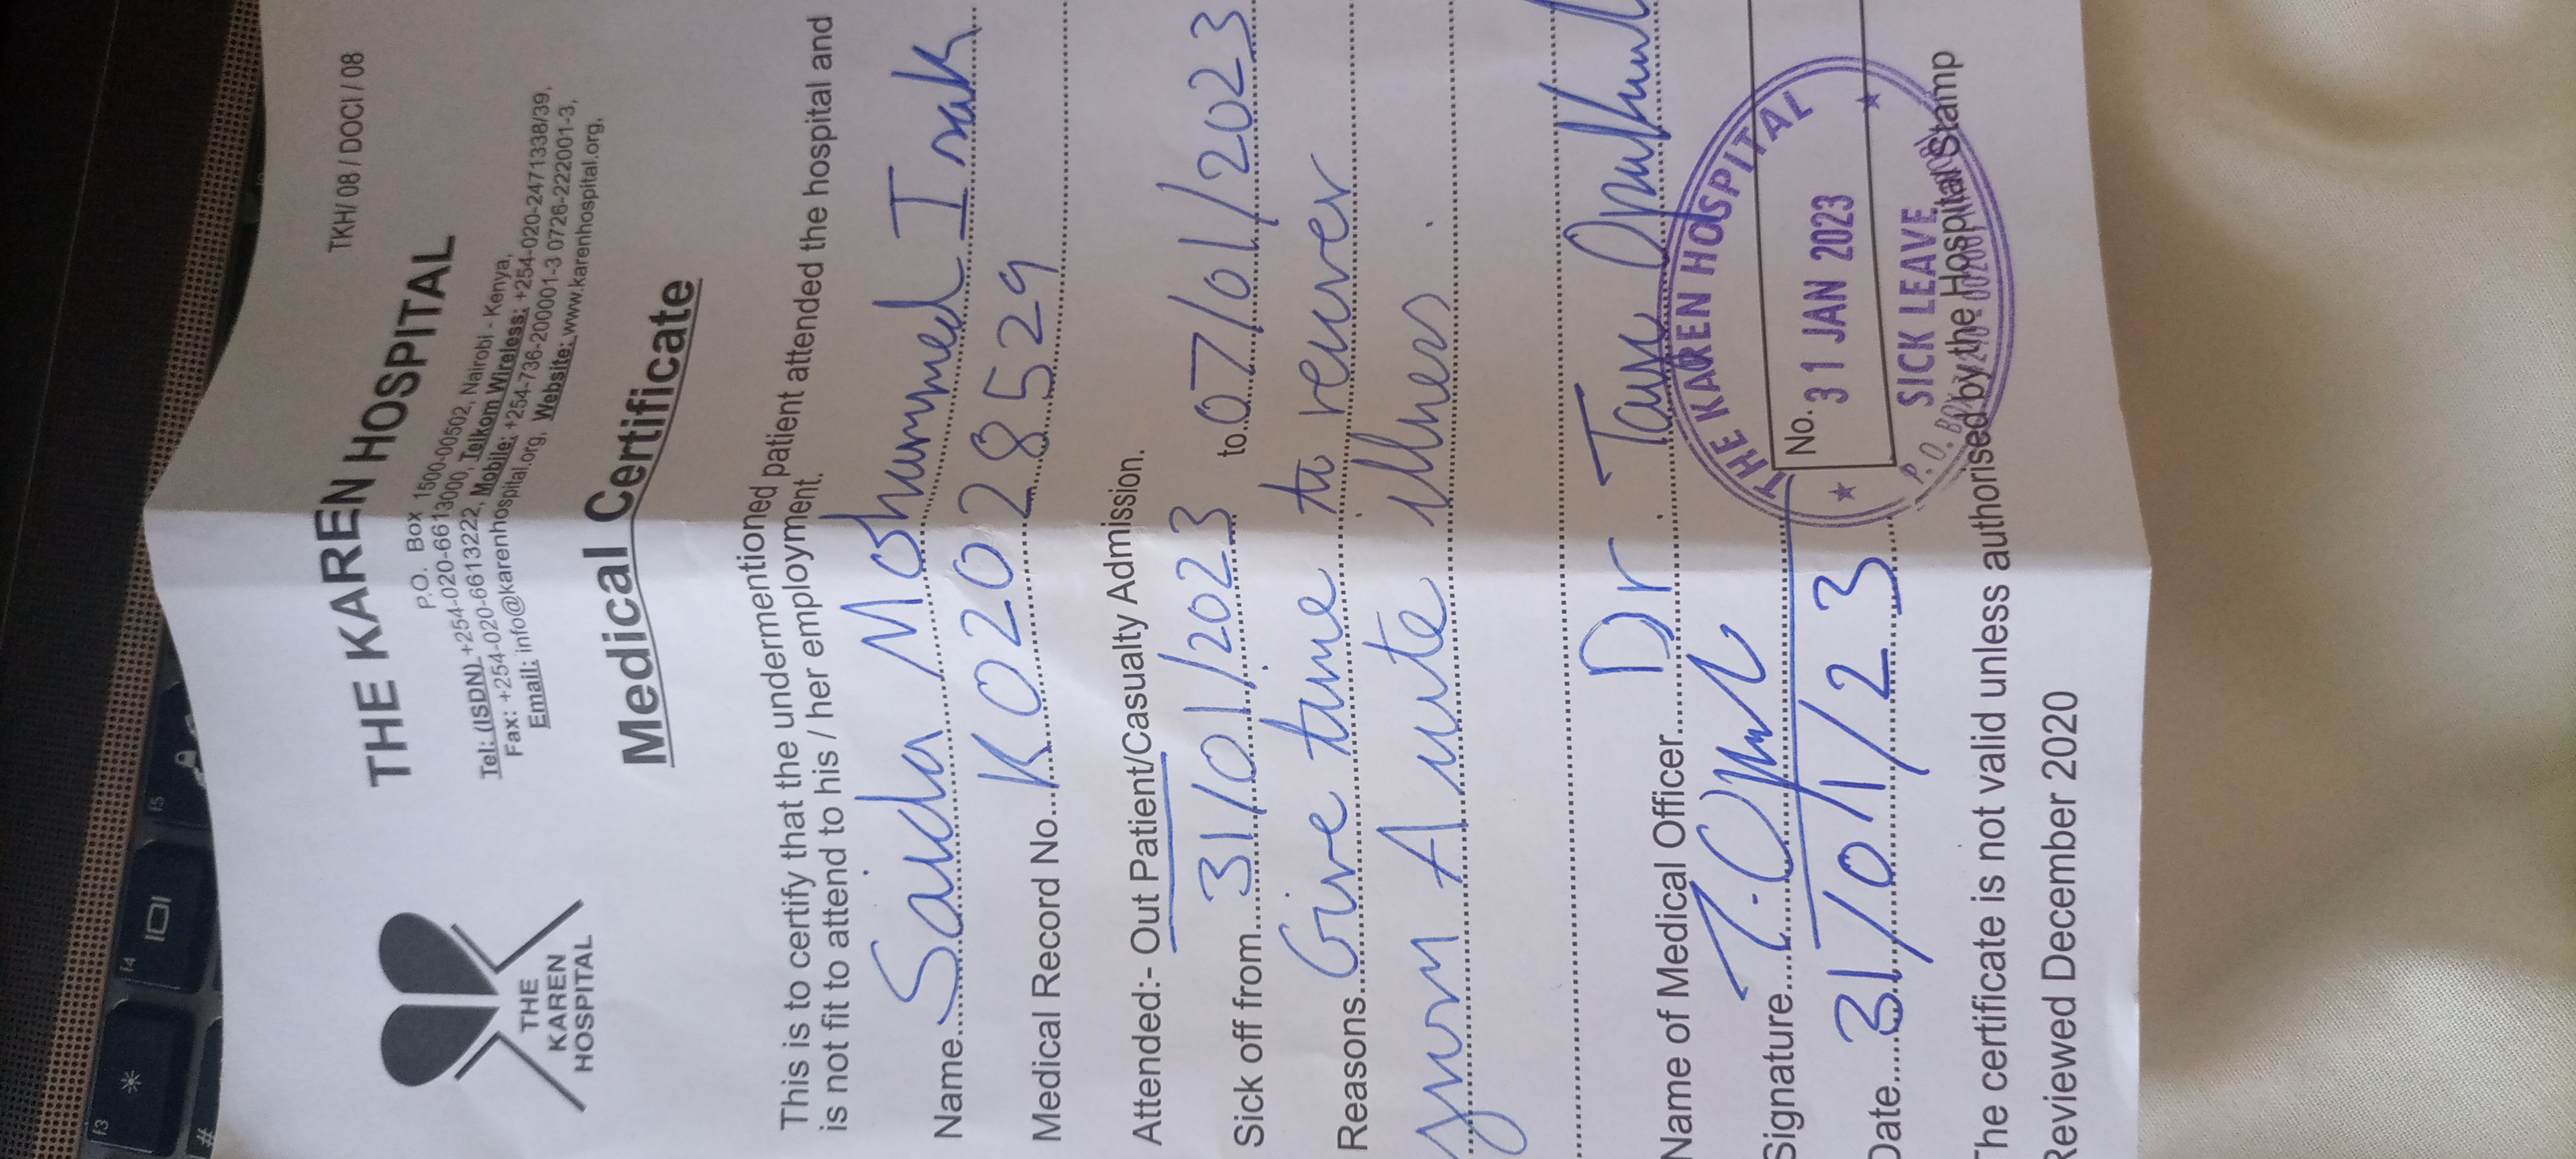 TKH/ 08 / DOCI / 08
THE KAREN HOSPITAL
P.O. Box 1500-00502, Nairobi - Kenya,
Tel: (ISDN) +254-020-6613000, Telkom Wireless: +254-020-2471338/39,
Fax: +254-020-6613222, Mobile: +254-736-200001-3 0726-2222001-3,
Email: info@karenhospital.org, Website: www.karenhospital.org,
THE
KAREN
HOSPITAL
Medical Certificate
This is to certify that the undermentioned patient attended the hospital and
is not fit to attend to his / her employment.
Name Saida Mohammed Isak
Medical Record No. K02028529
Attended:- Out Patient/Casualty Admission.
Sick off from 31/01/2023 to 07/01/2023
Reasons Give time to recover
from Acute illness.
Name of Medical Officer Dr.
Signature
THE KAREN HOSPITAL
No.
31 JAN 2023
SICK LEAVE
Date 31/01/23
The certificate is not valid unless authorised by the Hospital Stamp
Reviewed December 2020
f3
f4
f5
#